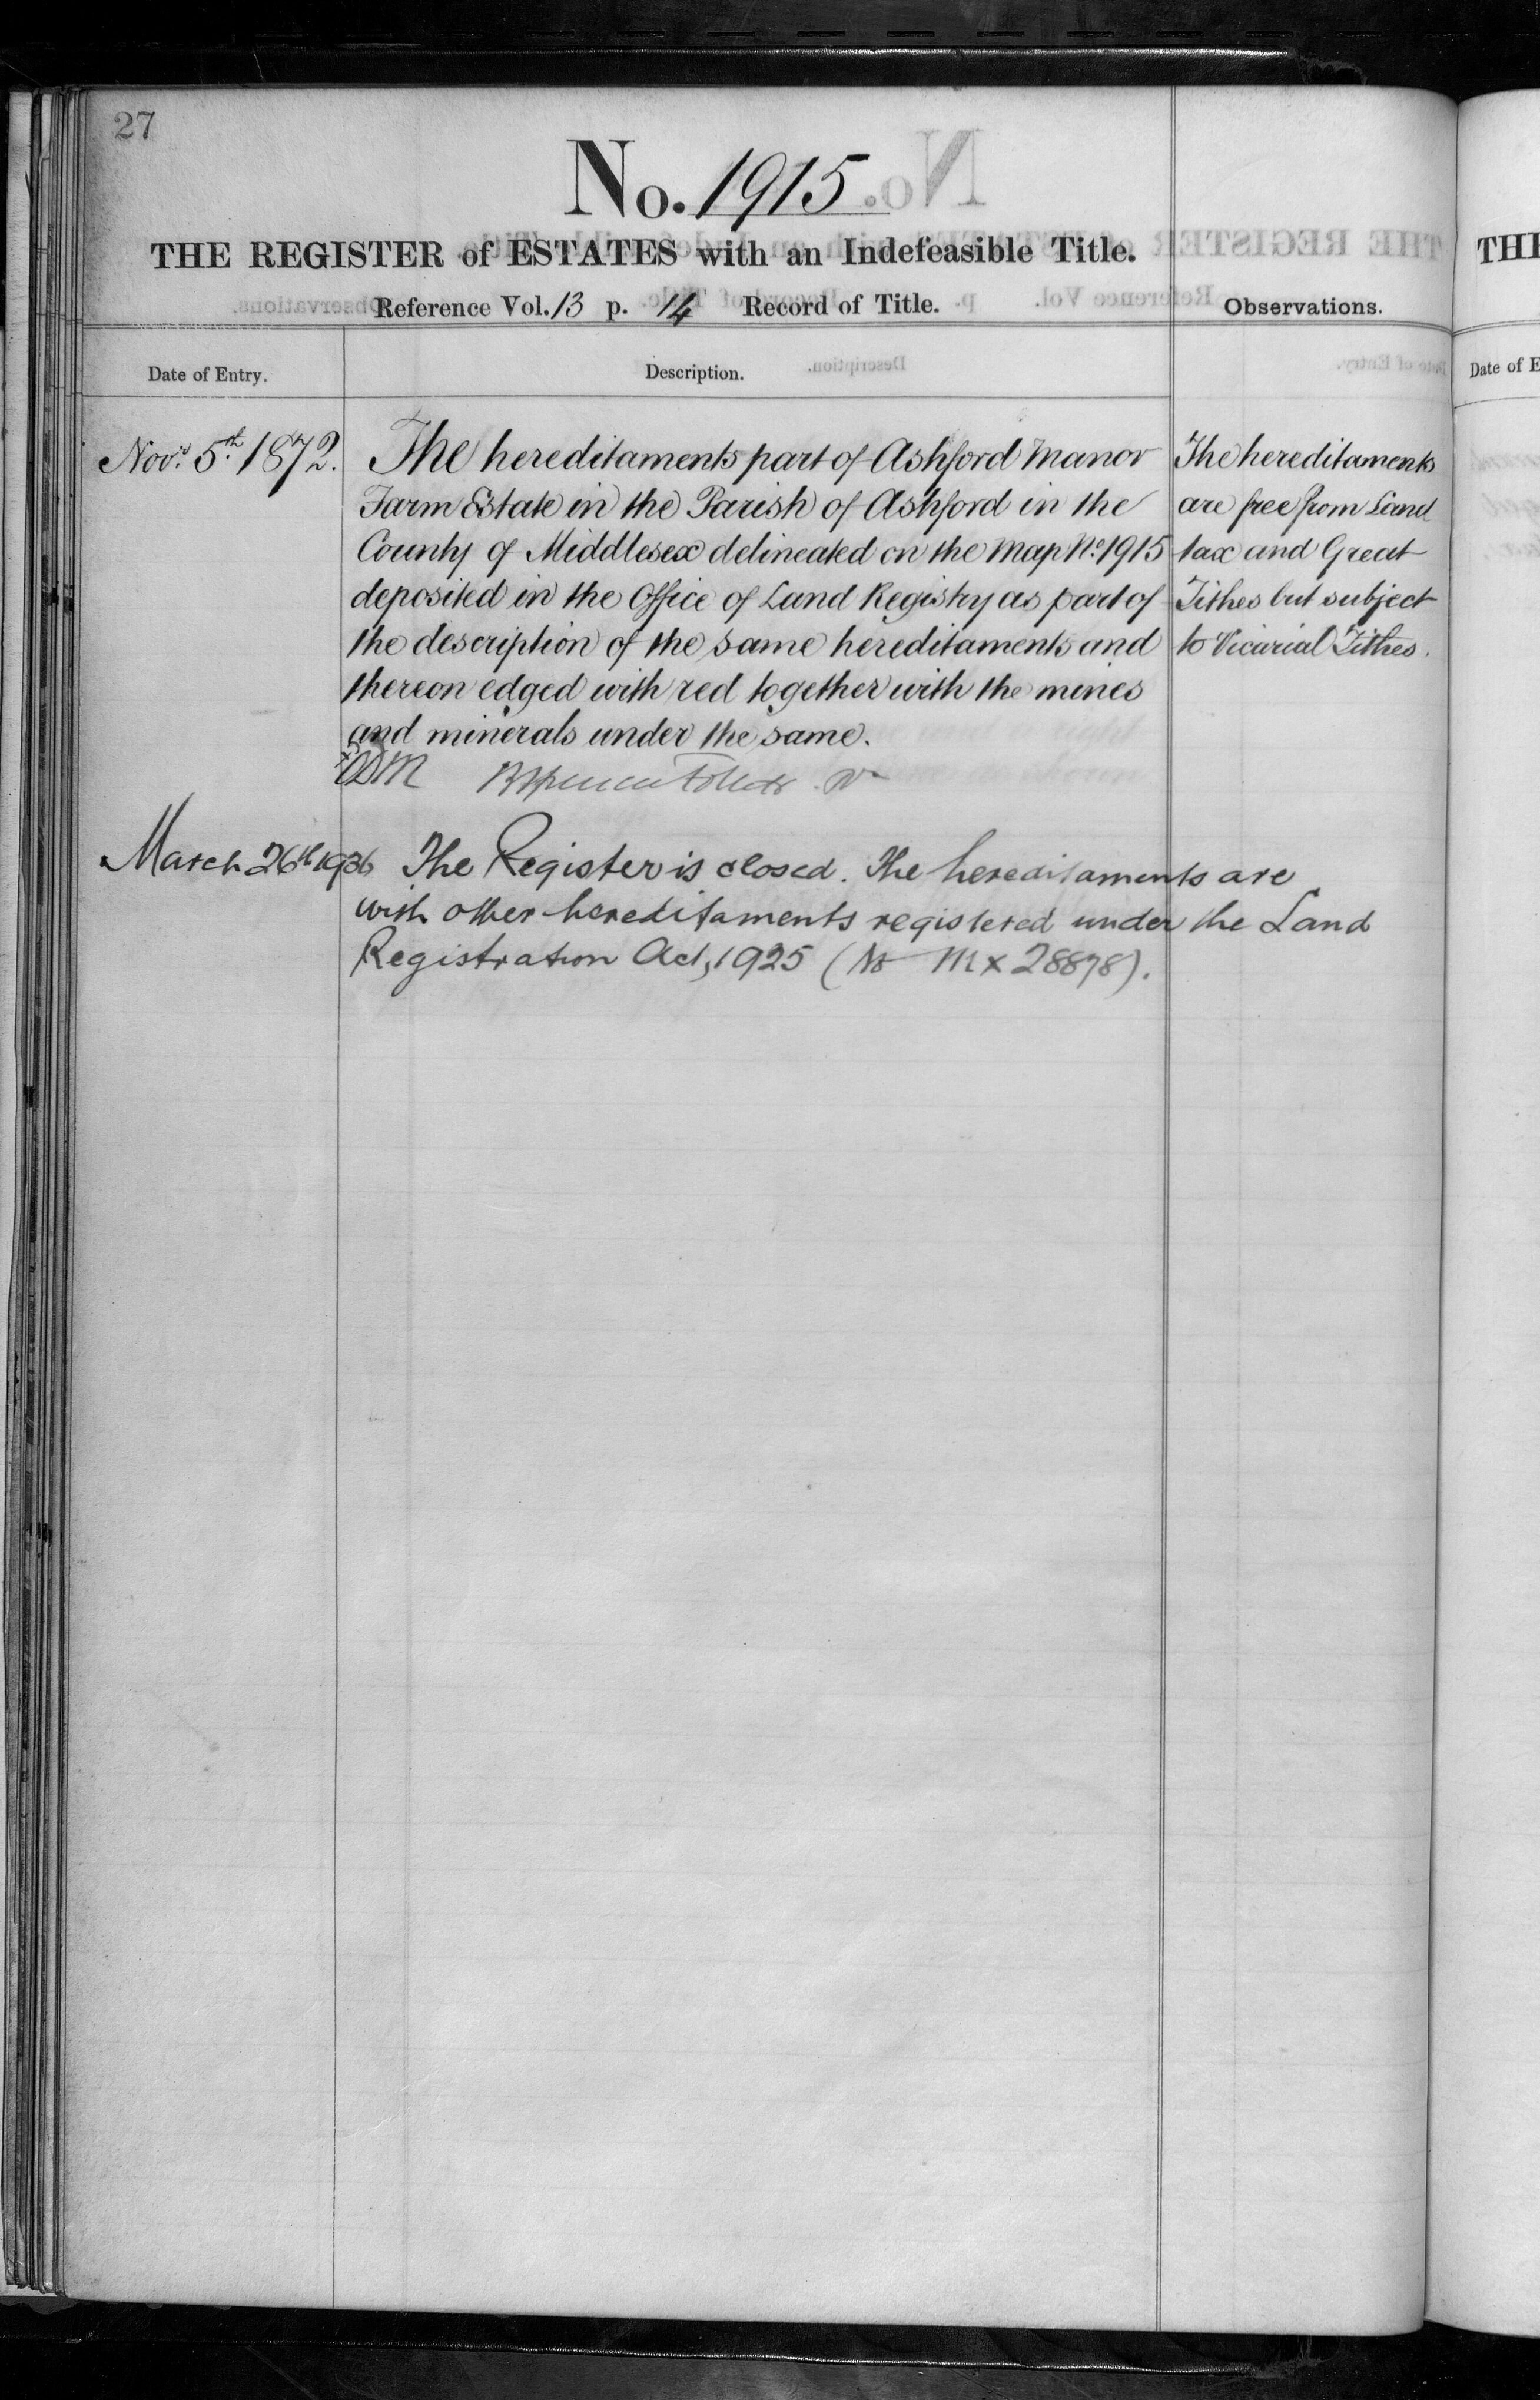 27
No. 1915
THE REGISTER of ESTATES with an Indefeasible Title.
Reference Vol. 13 p. 14 Record of Title.
Observations.
Date of Entry.
Description.
Novr. 5th. 1872.
The hereditaments part of Ashford Manor
Farm Estate in the Parish of Ashford in the
County of Middlesex delineated on the Map No. 1915
deposited in the Office of Land Registry as part of
the description of the same hereditaments and
thereon edged with red together with the mines
and minerals under the same.
The hereditaments
are free from Land
tax and Great
Tithes but subject
to Vicarial Tithes.
March 26th 1936
The Register is closed. The hereditaments are
with other hereditaments registered under the Land
Registration Act, 1925 (No Mx 28878).
THE
Date of E